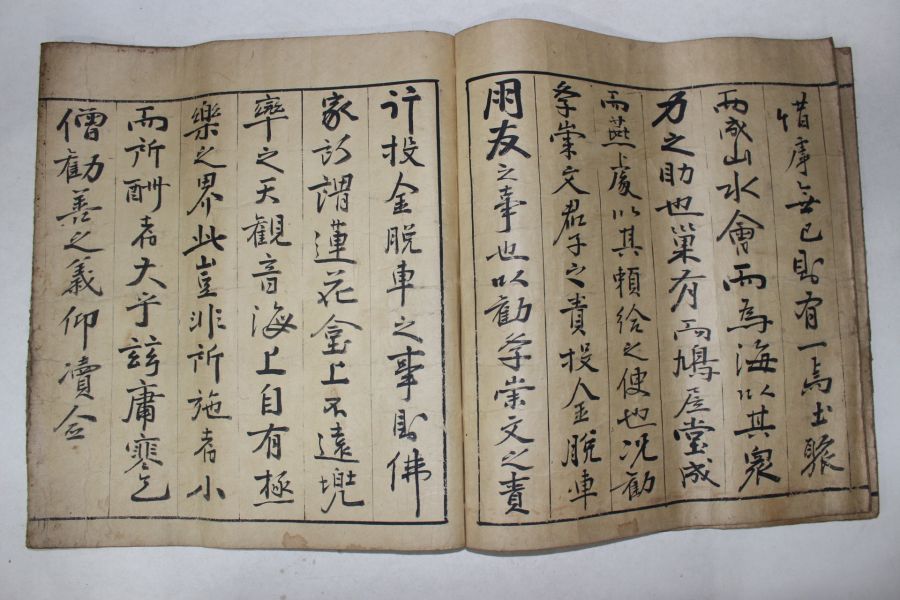 惜乎無已則有一焉土聚
而成山水會而為海以其衆
力之助也巢有而鳩居堂成
而燕處以其賴給之便也况勸
學崇文君子之責投金脫車
朋友之事也以勸學崇文之責
行投金脫車之事則佛
家所謂蓮花臺上不遠兜
率之天觀音海上自有極
樂之界此豈非所施者小
而所酬者大乎玆庸寒乞
僧勸善之義仰瀆僉